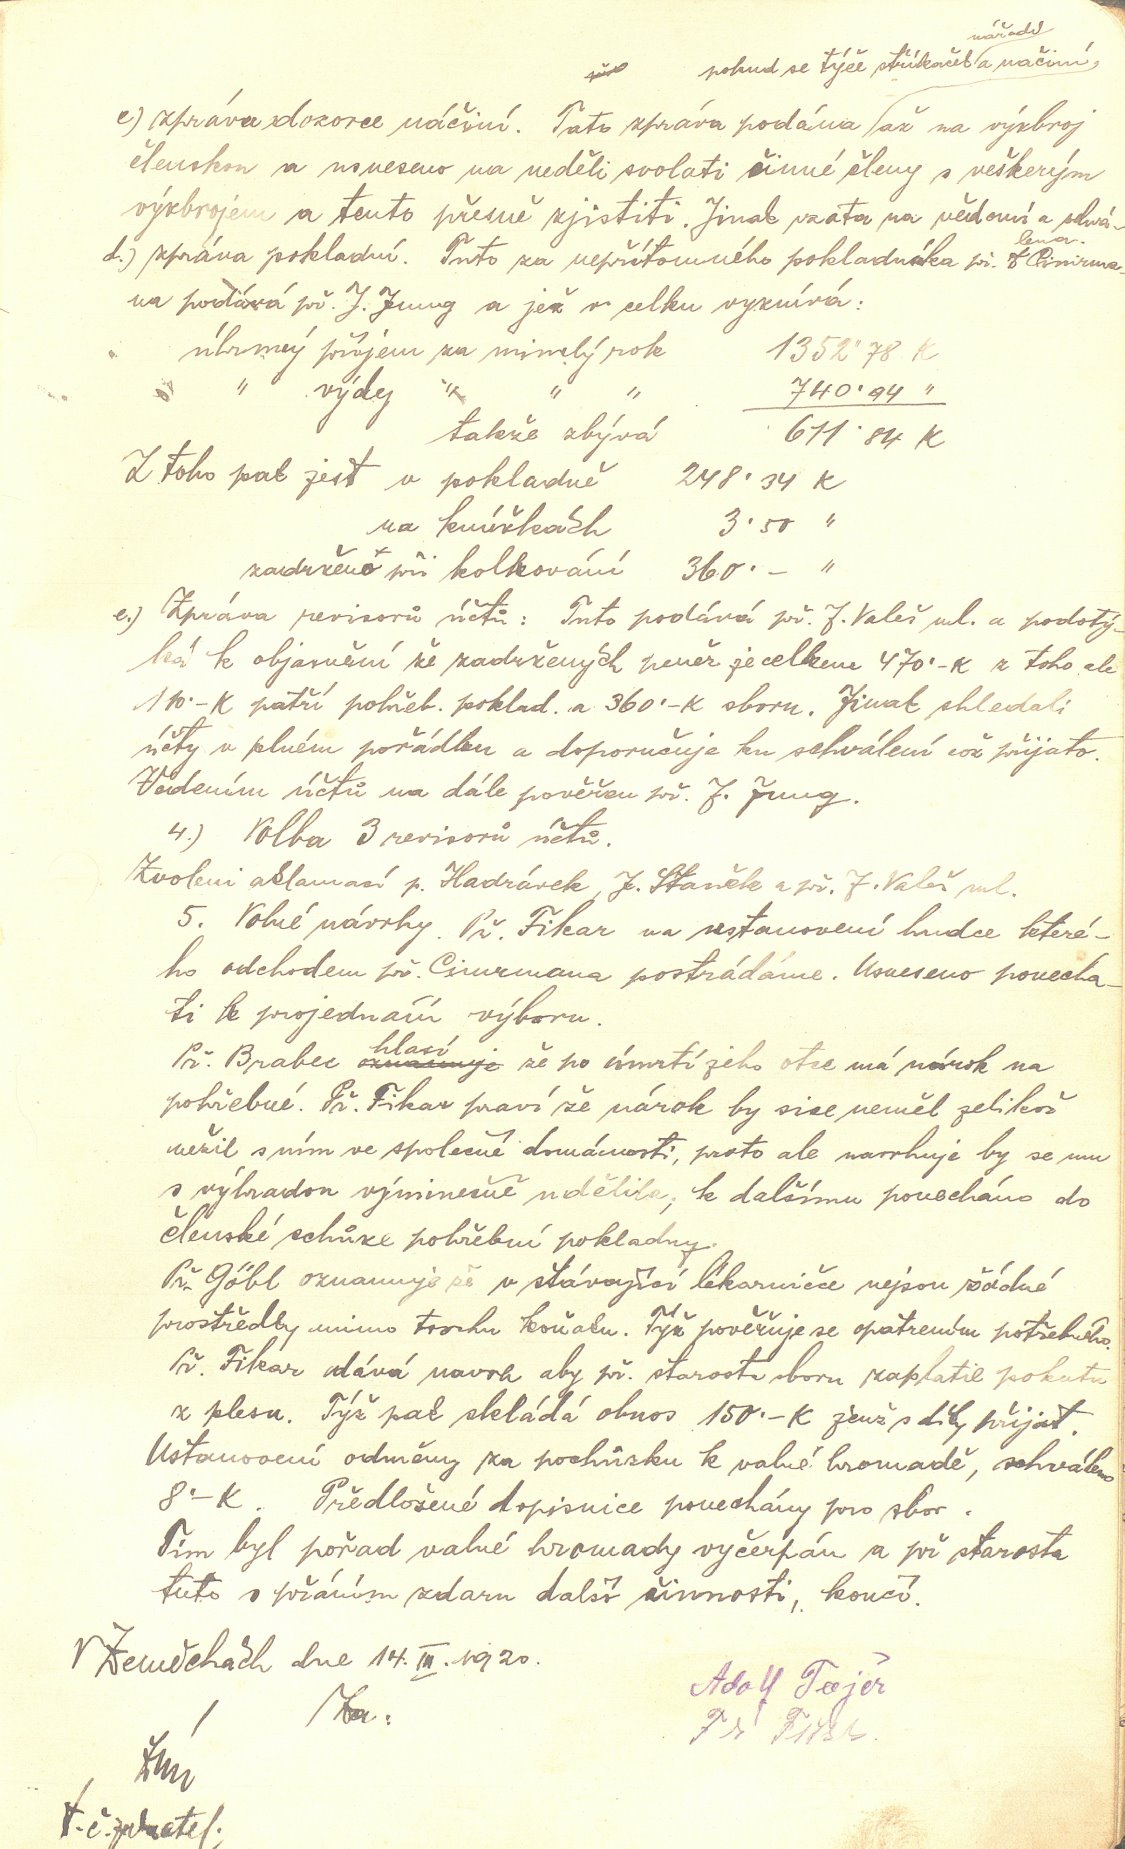 nářadí
pokud se týče stříkaček a načiní,
c) zpráva dozorce náčiní. Tato zpráva podána až na výzbroj
členskou a usneseno na neděli svolati činné členy s veškerým
výzbrojem a tento přesně zjistiti. Jinak vzata na vědomí a schvá-
lena.
d.) zpráva pokladní. Tuto za nepřítomného pokladníka př. Cimrma-
na podává př. J. Jung a jež v celku vyznívá:
úhrnný příjem za minulý rok 1352·78 K
" výdej " " " 740·94 "
takže zbývá 611·84 K
Z toho pak jest v pokladně 248·34 K
na knížkách 3·50 "
zadrženo při kolkování 360·– "
e.) Zpráva revisorů účtů: Tuto podává př. J. Valeš ml. a podotý-
ká k objasnění že zadržených peněz je celkem 470·–K z toho ale
110·–K patří pohřeb. poklad. a 360·–K sboru. Jinak shledali
účty v plném pořádku a doporučuje ku schválení což přijato.
Vedením účtů na dále pověřen př. J. Jung.
4.) Volba 3 revisorů účtů.
Zvoleni aklamací p. Hadrávek, J. Staněk a př. J. Valeš ml.
5. Volné návrhy. Př. Fikar na ustanovení hudce které-
ho odchodem př. Cimrmana postrádáme. Usneseno ponecha-
ti k projednání výboru.
hlasí
Př. Brabec oznamuje že po úmrtí jeho otce má nárok na
pohřebné. Př. Fikar praví že nárok by sice neměl jelikož
nežil s ním ve společné domácnosti, proto ale navrhuje by se mu
s výhradou výminečně udělilo, k dalšímu ponecháno do
členské schůze pohřební pokladny.
Př. Göbl oznamuje že v stávající lékarničce nejsou žádné
prostředky mimo trochu koňaku. Týž pověřuje se opatrením potřebného.
Př. Fikar dává navrh aby př. starosta sboru zaplatil pokutu
z plesu. Týž pak skládá obnos 150·–K jenž s díky přijat.
Ustanovení odměny za pochůzku k valné hromadě, schváleno
8·–K. Předložené dopisnice ponechány pro sbor.
Tím byl pořad valné hromady vyčerpán a př starosta
tuto s přáním zdaru další činnosti, končí.
V Zeměchách dne 14. III. 1920.
Adolf Tejer
Za:
t.č. jednatel.